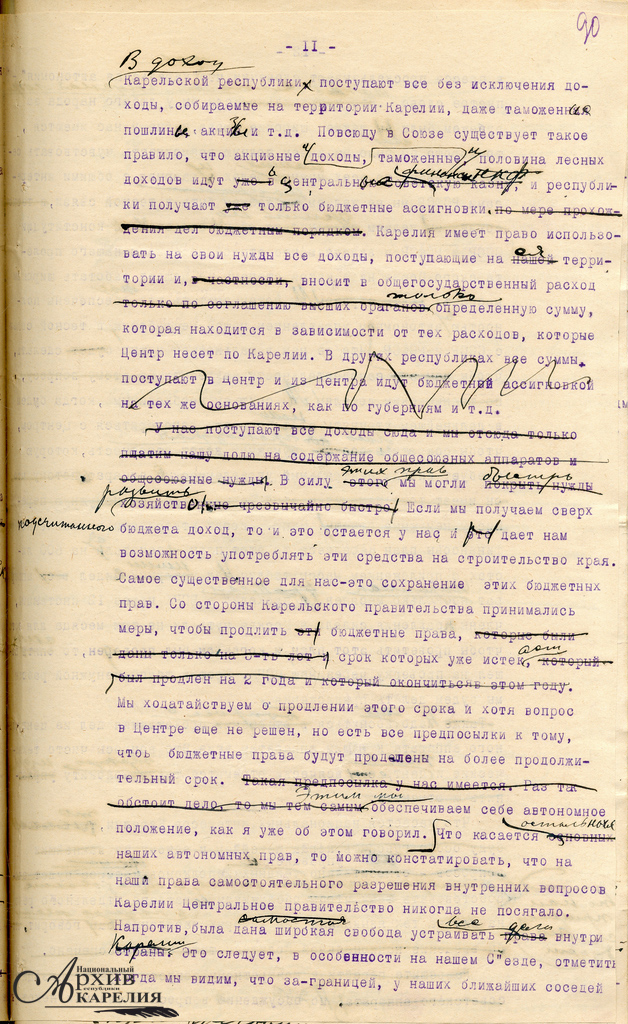 90
- 11 -
В доход
Карельской республики поступают все без исключения до-
ходы, собираемые на территории Карелии, даже таможенная
пошлина, акциз и т.д. Повсюду в Союзе существует такое
правило, что акцизные доходы, таможенные и половина лесных
доходов идут уже в центральную советскую казну, и республи-
ки получают уже только бюджетные ассигновки по мере прохож-
дения дел бюджетным порядком. Карелия имеет право использо-
вать на свои нужды все доходы, поступающие на нашей ея терри-
тории и, в частности, вносит в общегосударственный расход
только
только по соглашению высших органов определенную сумму,
которая находится в зависимости от тех расходов, которые
Центр несет по Карелии. В других республиках все суммы
поступают в Центр и из Центра идут бюджетной ассигновкой
на тех же основаниях, как по губерниям и т.д.
У нас поступают все доходы сюда и мы отсюда только
платим нашу долю на содержание общесоюзных аппаратов и
этих прав быстро
общесоюзные нужды. В силу этого мы могли покрыть нужды
развить
хозяйство чрезвычайно быстро. Если мы получаем сверх
подсчитанного
бюджета доход, то и это остается у нас и это дает нам
возможность употреблять эти средства на строительство края.
Самое существенное для нас-это сохранение этих бюджетных
прав. Со стороны Карельского правительства принимались
меры, чтобы продлить эти бюджетные права, которые были
даны только на 5-ть лет и срок которых уже истек, который
был продлен на 2 года и который окончиться в этом году.
Мы ходатайствуем о продлении этого срока и хотя вопрос
в Центре еще не решен, но есть все предпосылки к тому,
чтоь бюджетные права будут продлены на более продолжи-
тельный срок. Такая предпосылка у нас имеется. Раз так
Этим мы
обстоит дело, то мы тем самым обеспечиваем себе автономное
остальных
положение, как я уже об этом говорил. Что касается основных
наших автономных прав, то можно констатировать, что на
наши права самостоятельного разрешения внутренних вопросов
Карелии Центральное правительство никогда не посягало.
все дела
Напротив, была дана широкая свобода устраивать права внутри
Карелии
страны. Это следует, в особенности на нашем С"езде, отметить
когда мы видим, что за-границей, у наших ближайших соседей
Национальный
Архив
Республики
Карелия